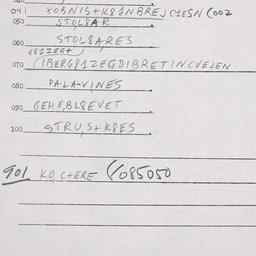 041 XOBNIS+K81NBREJC1ESN (002
050 STOL8AR
060 STOL8ARES
4812EG+
070 (IBERG812EGDIBRETINCVEJEN
080 PALA-VINES
090 GEHEBL8EVET
100 STRUS+K8ES
901 KO,C+ERE (/085050